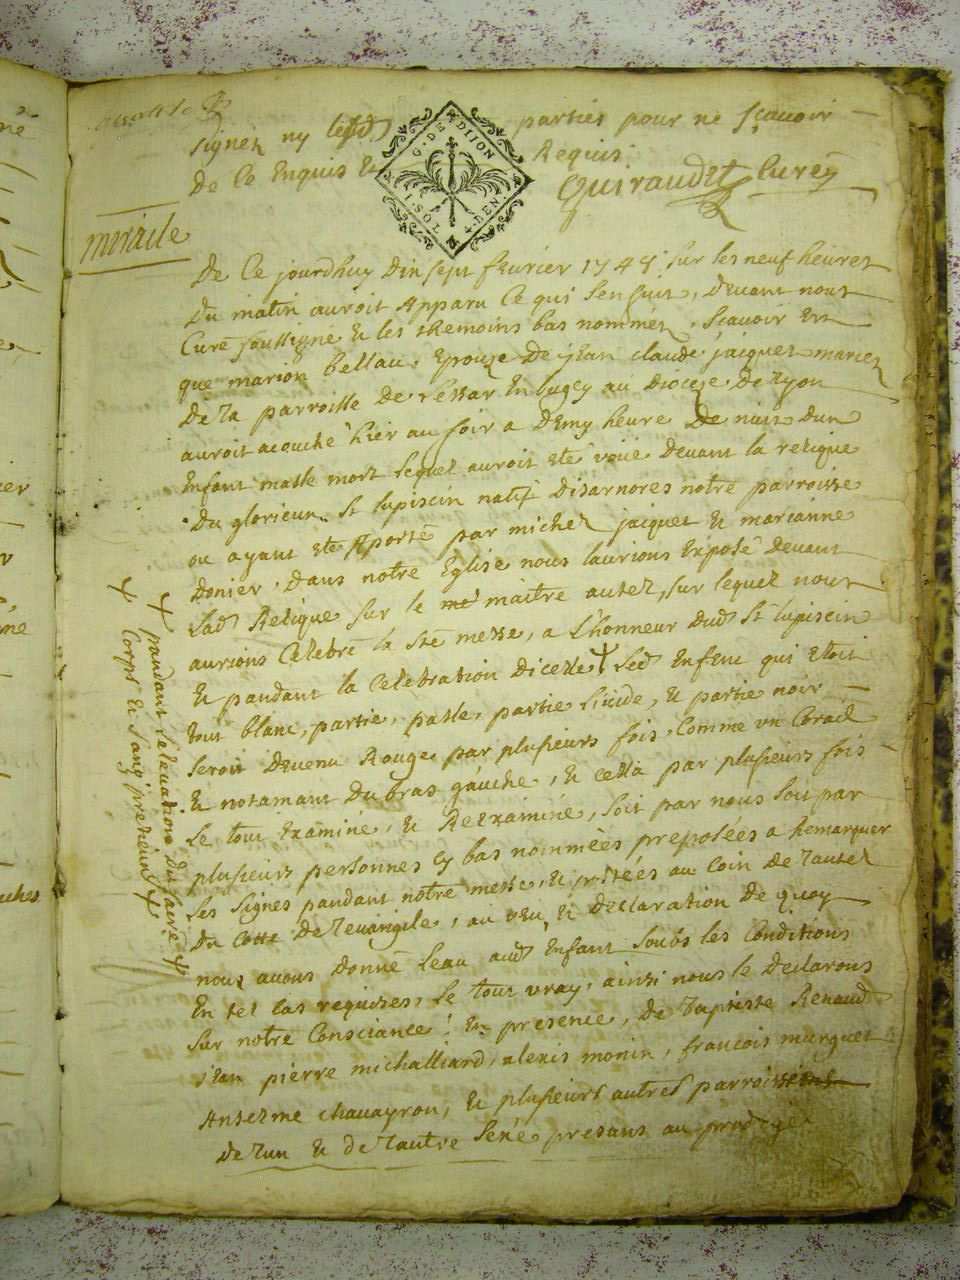 signer ny lesd parties pour ne scavoir
de ce enquis et Requis.
Guiraudet curé
G. DE DIJON
1. SOL 4. DEN
miracle
De ce jourdhuy dix sept fevrier 1748 sur les neuf heures
du matin auroit Apparu ce qui sensuit, devant nous
Curé soussigné et les themoins bas nommés, scavoir est
que marion bellau Epouze de jean claude jacquet
de la parroisse de en bugey au dioceze de lyon
auroit acouché hier au soir a demy heure de nuit dun
Enfant masle mort lequel auroit eté voüé devant la relique
du glorieux St lupiscin natif disarnores notre parroisse
ou ayant eté Aporté par michel jacquet et marianne
donier, dans notre Eglise nous laurions Exposé devant
lad Relique sur le maitre autel, sur lequel nous
aurions Celebré la Ste messe, a l'honneur dud St lupiscin
et pandant la Celebration dicelle led Enfant qui etoit
tout blanc, partie pasle, partie livide, et partie noir
seroit devenu Rouge par plusieurs fois, Comme un Corail
et notamant du bras gauche, et cella par plusieurs fois
le tout Examiné, et Reexaminé, soit par nous soit par
plusieurs personnes cy bas nommées preposées a Remarquer
les signes pandant notre messe, et au coin de lautel
du Cotte de levangile, au veu, et declaration de quoy
nous avons donné leau aud Enfant soubs les Conditions
En tel cas requises, le tout vray, ainsi nous le declarons
sur notre Consciance! En presence, de baptiste Renaud
jean pierre michalliard, alexis monin, francois murguet
Anselme chavayron, et plusieurs autres parroissiens
de lun et de lautre sexe presans au prodige
pandant lelevation du sacré
Corps et sang pretieux